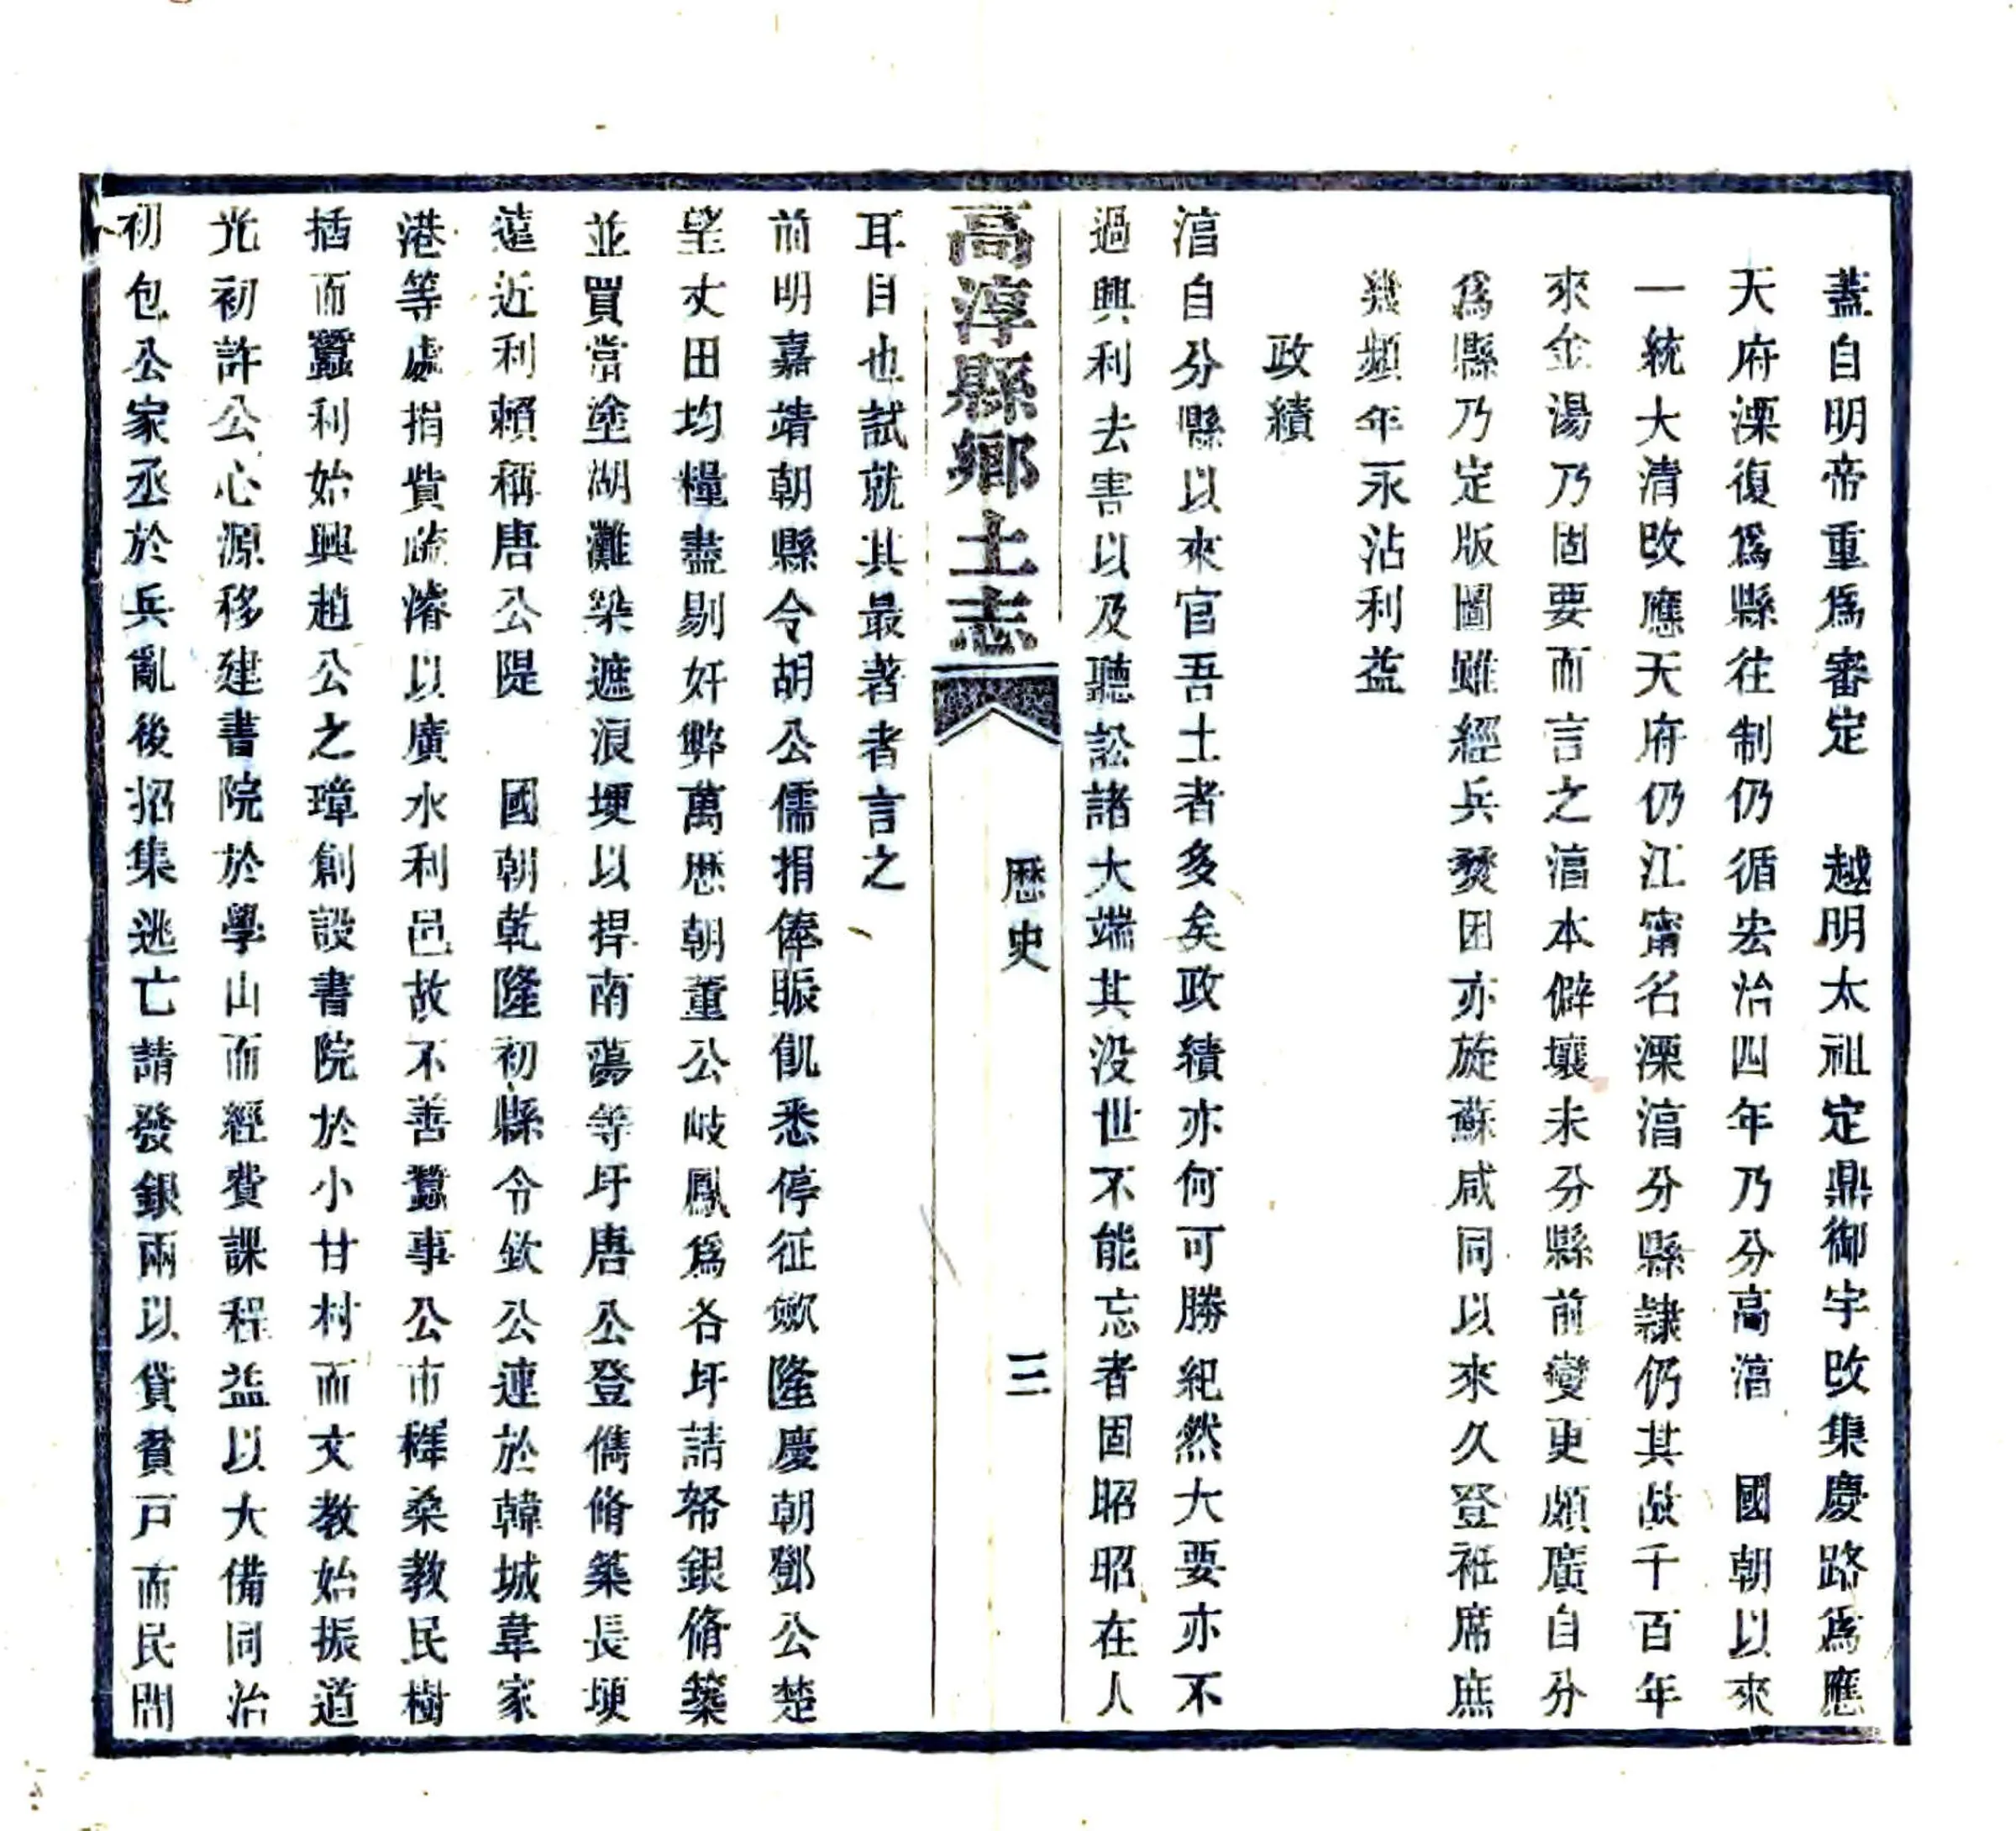 蓋自明帝重爲審定　越明太祖定鼎御宇改集慶路爲應
天府溧復爲縣往制仍循宏治四年乃分高湻　國朝以來
一統大清改應天府仍江甯名溧湻分縣隷仍其故千百年
來金湯乃固要而言之湻本僻壤未分縣前變更頗廣自分
爲縣乃定版圖雖經兵燹困亦旋蘇咸同以來久登袵席庶
幾頻年永沾利益
政績
湻自分縣以來官吾土者多矣政績亦何可勝紀然大要亦不
過興利去害以及聽訟諸大端其没世不能忘者固昭昭在人
高淳縣鄉土志
歷史
三
耳目也試就其最著者言之
前明嘉靖朝縣令胡公儒捐俸賑飢悉停征歛隆慶朝鄧公楚
望丈田均糧盡剔奸弊萬歷朝董公岐鳳爲各圩請帑銀脩築
並買當塗湖灘栄遮浪埂以捍南蕩等圩唐公登儁脩築長埂
遠近利賴稱唐公隄　國朝乾隆初縣令欽公連於韓城韋家
港等處捐貲疏濬以廣水利邑故不善蠶事公市穉桑教民樹
插而蠶利始興趙公之璋創設書院於小甘村而文教始振道
光初許公心源移建書院於學山而經費課程益以大備同治
初包公家丞於兵亂後招集逃亡請發銀兩以貸貧戸而民間